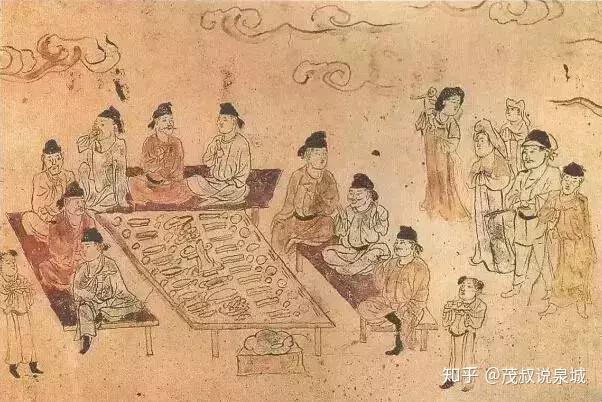 知乎 @茂叔说泉城